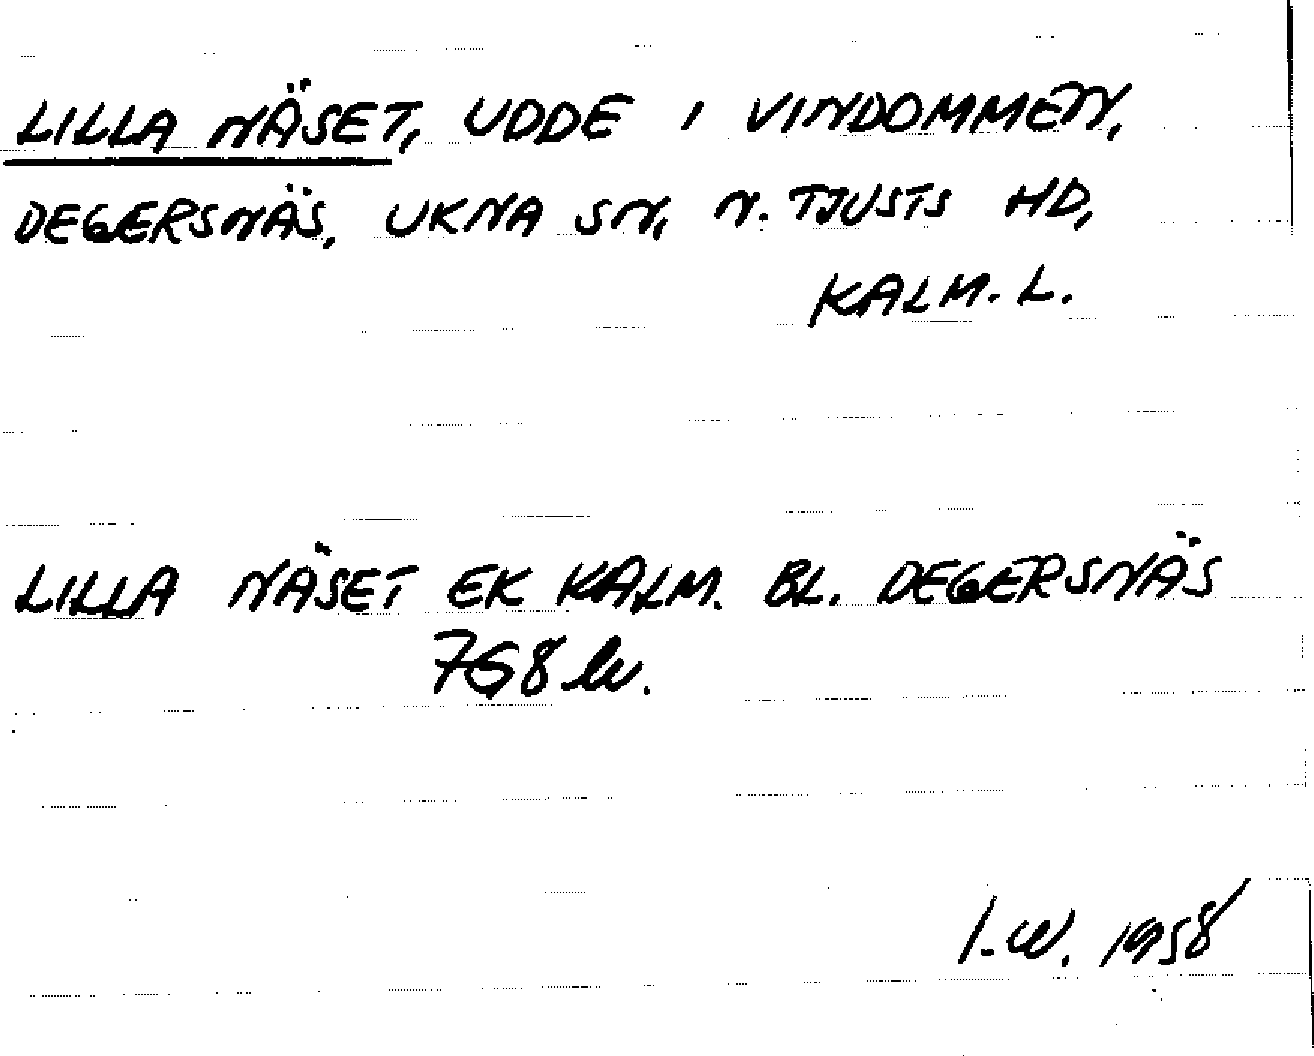 LILLA NÄSET, UDDE I VINDOMMEN,
DEGERSNÄS, UKNA SN, N. TJUSTS HD,
KALM. L.
LILLA NÄSET EK KALM. BL. DEGERSNÄS
768
I.W. 1958